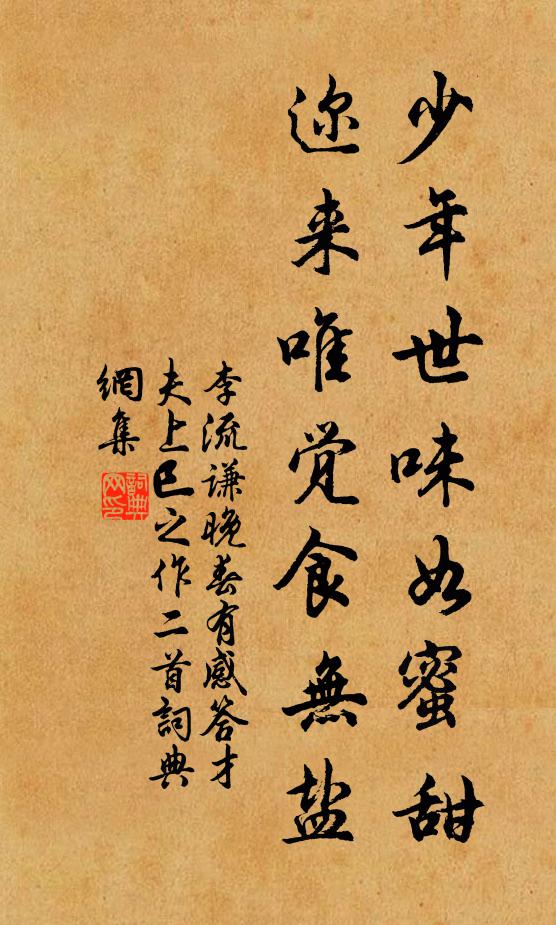 少年世味如蜜甜
迩来唯觉食無盐
李流谦晚春有感答才
夫上巳之作二首詞典
網集
詞典网印